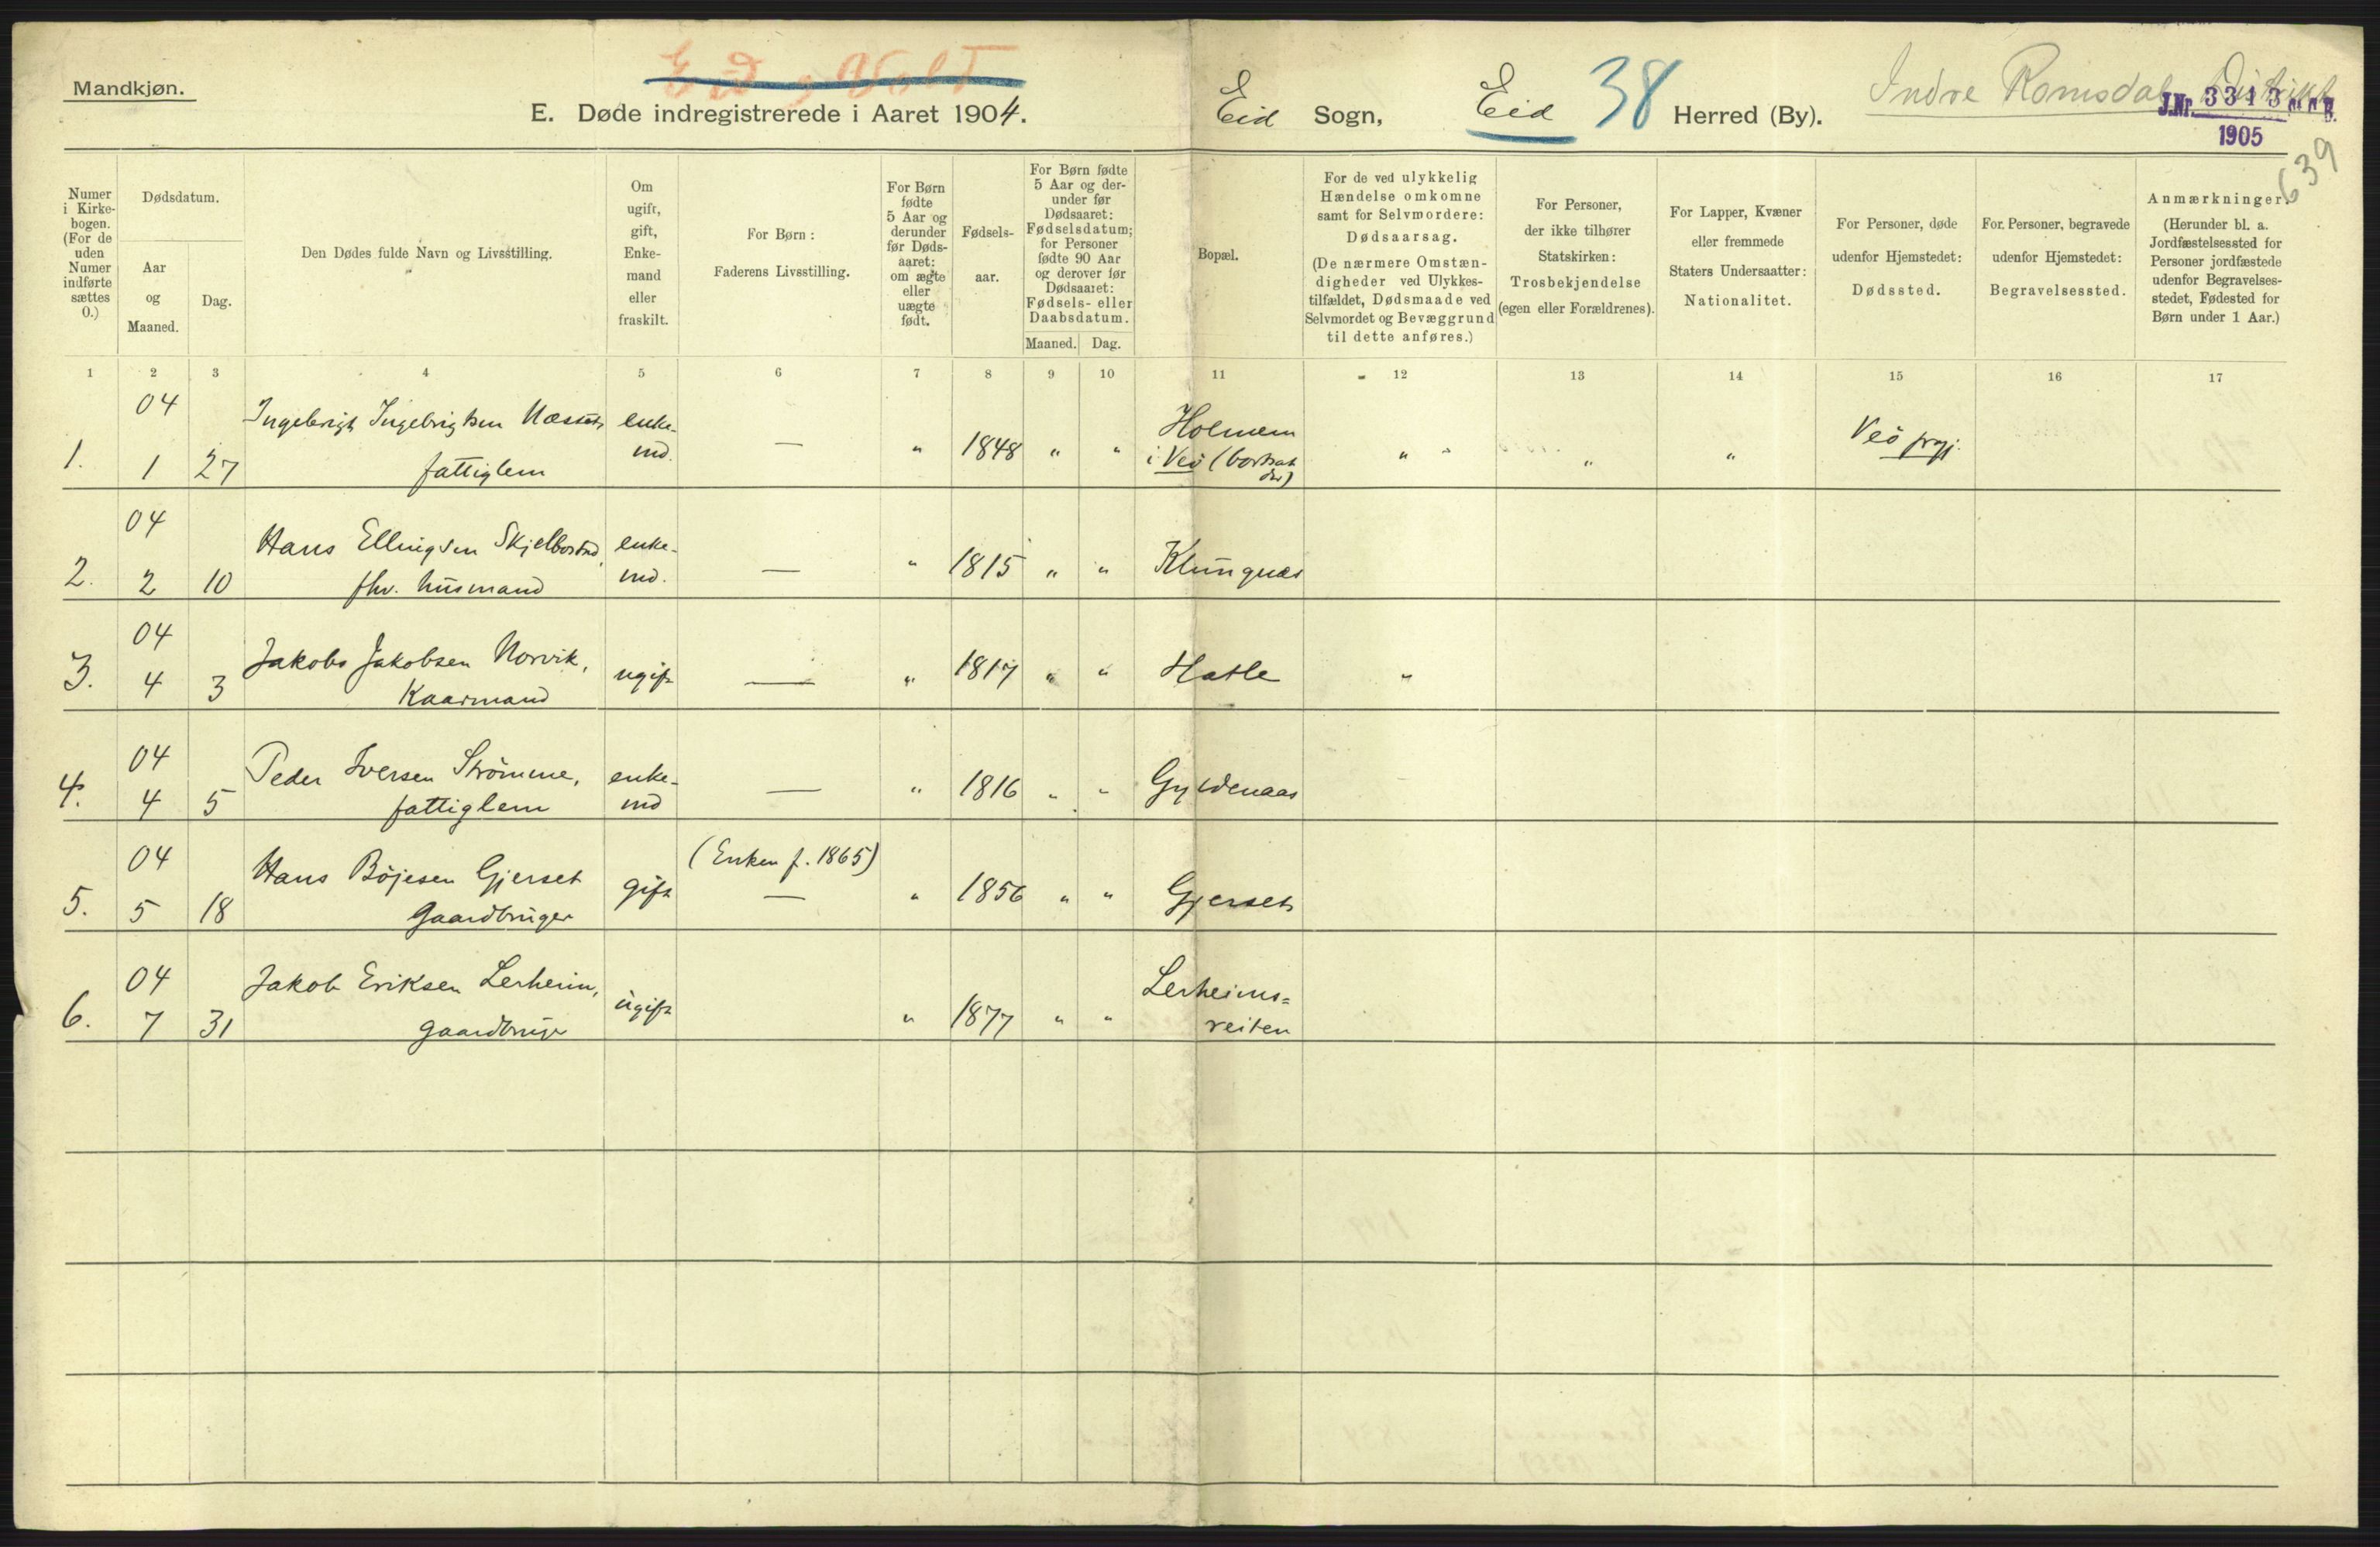 Mandkjøn.
E. Døde indregistrerede i Aaret 1904.
Eid Sogn, Eid 38 Herred (By).
Indre Romsdal Distrikt
J.Nr. 3313
1905
639
Numer i Kirke-bogen. (For de uden Numer indførte sættes 0.)
Dødsdatum.
Aar og Maaned.
Dag.
Den Dødes fulde Navn og Livsstilling.
Om ugift, gift, Enke-mand eller fraskilt.
For Børn: Faderens Livsstilling.
For Børn fødte 5 Aar og derunder før Døds-aaret: om ægte eller uægte født.
Fødsels-aar.
For Børn fødte 5 Aar og der-under før Dødsaaret: Fødselsdatum; for Personer fødte 90 Aar og derover før Dødsaaret: Fødsels- eller Daabsdatum.
Maaned. Dag.
Bopæl.
For de ved ulykkelig Hændelse omkomne samt for Selvmordere: Dødsaarsag. (De nærmere Omstæn-digheder ved Ulykkes-tilfældet, Dødsmaade ved Selvmordet og Bevæggrund til dette anføres.)
For Personer, der ikke tilhører Statskirken: Trosbekjendelse (egen eller Forældrenes).
For Lapper, Kvæner eller fremmede Staters Undersaatter: Nationalitet.
For Personer, døde udenfor Hjemstedet: Dødssted.
For Personer, begravede udenfor Hjemstedet: Begravelsessted.
Anmærkninger. (Herunder bl. a. Jordfæstelsessted for Personer jordfæstede udenfor Begravelses-stedet, Fødested for Børn under 1 Aar.)
1 2 3 4 5 6 7 8 9 10 11 12 13 14 15 16 17
04 Ingebrigt Ingebrigtsen Næsset, enke- Holmem Veö prgj.
1. 1 27 fattiglem md. — " 1848 " " i Veö (bortsat " " "
der)
04 Hans Ellingsen Skjelbostad, enke-
2. 2 10 fhv. husmand md. — " 1815 " " Klungnæs
04 Jakob Jakobsen Norvik,
3. 4 3 Kaarmand ugift — " 1817 " " Hatle "
04 Peder Iversen Strömme, enke-
4. 4 5 fattiglem md — " 1816 " " Gyldenaas
04 Hans Böjesen Gjerset (Enken f. 1865)
5. 5 18 Gaardbruger gift — " 1856 " " Gjerset
04 Jakob Eriksen Lerheim, Lerheims=
6. 7 31 gaardbruger ugift " 1877 " " reiten